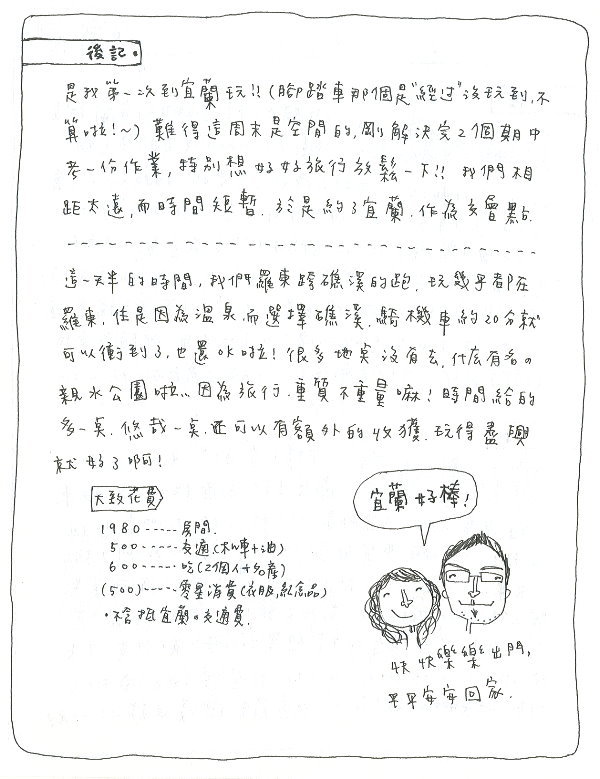 後記.
是我第一次到宜蘭玩!! (腳踏車那個是"經過"沒玩到, 不
算啦!~) 難得這周末是空閒的, 剛解決完2個期中
考一份作業, 特別想好好旅行放鬆一下!! 我們相
距太遠, 而時間短暫. 於是約了宜蘭. 作為交會點.
這一天半的時間, 我們羅東跨礁溪的跑. 玩幾乎都在
羅東. 住是因為溫泉. 而選擇礁溪. 騎機車約20分就
可以衝到了, 也還OK啦! 很多地點沒有去, 什麼有名の
親水公園啦... 因為旅行. 重質不重量嘛! 時間給的
多一點. 悠哉一點. 還可以有額外的收獲. 玩得盡興
就好了啊!
大致花費
1980-----房間.
500-----交通 (机車+油)
600-----吃 (2個人+名產)
(500)-----零星消費 (衣服, 紀念品)
•不含抵宜蘭の交通費.
宜蘭好棒!
快快樂樂出門,
平平安安回家.